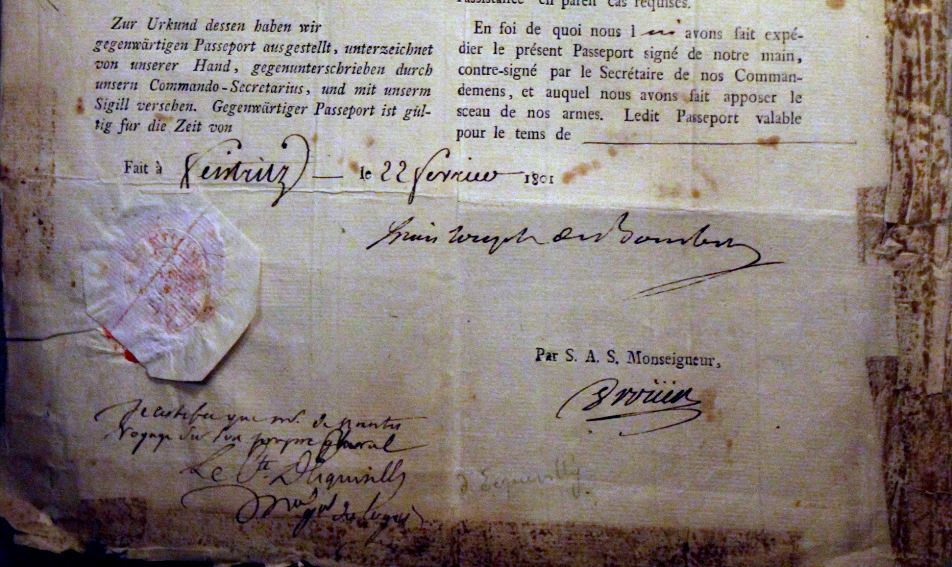 Zur Urkund dessen haben wir
gegenwärtigen Passeport ausgestellt, unterzeichnet
von unserer Hand, gegenunterschrieben durch
unsern Commando-Secretarius, und mit unserm
Sigill versehen. Gegenwärtiger Passeport ist gül-
tig für die Zeit von
l'assistance en pareil cas requises.
En foi de quoi nous l avons fait expé-
dier le présent Passeport signé de notre main,
contre-signé par le Secrétaire de nos Comman-
demens, et auquel nous avons fait apposer le
sceau de nos armes. Ledit Passeport valable
pour le tems de
Fait à Feistritz le 22 fevrier 1801
Louis Joseph de Bourbon
Par S. A. S. Monseigneur,
Drouin
que mr. de
voyage
Le Cte D'Equevilly
d'Equevilly